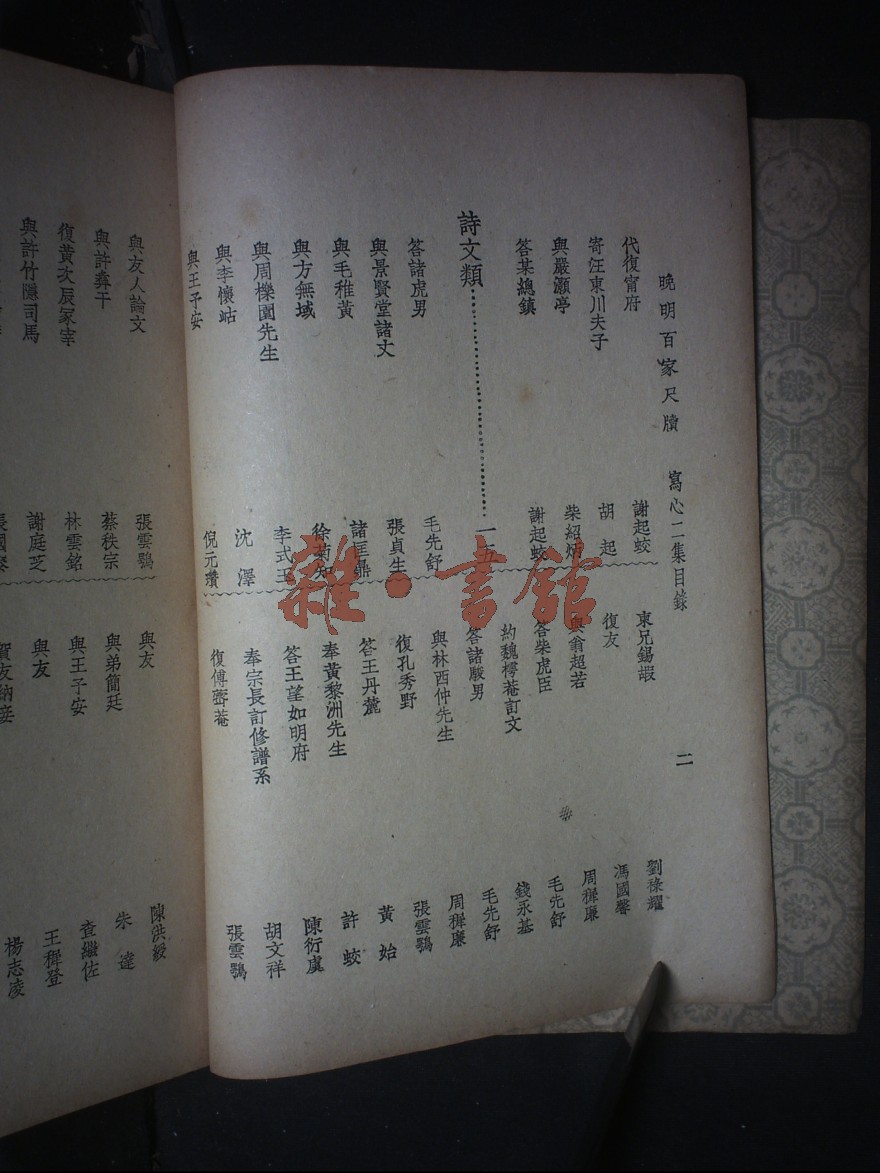 晚明百家尺牘　寫心二集目錄　二
代復甯府　謝起蛟
寄汪東川夫子　胡　起
與嚴灝亭　柴紹炳
答某總鎮　謝起蛟
詩文類……一五
答諸虎男　毛先舒
與景賢堂諸丈　張貞生
與毛稚黃　諸匡鼎
與方無域　徐菊知
與周櫟園先生　李式玉
與李懷岵　沈　澤
與王予安　倪元瓚
柬兄錫嘏　劉祿耀
復友　馮國馨
與翁超若　周穉廉
答柴虎臣　毛先舒
約魏樗菴訂文　錢永基
答諸駿男　毛先舒
與林西仲先生　周穉廉
復孔秀野　張雲鶚
答王丹麓　黃　始
奉黃黎洲先生　許　蛟
答王望如明府　陳衍虞
奉宗長訂修譜系　胡文祥
復傅菴　張雲鶚
與友人論文　張雲鶚
與許彝干　蔡秩宗
復黃次辰冢宰　林雲銘
與許竹隱司馬　謝庭芝
與友　陳洪綬
與弟簡廷　朱　達
與王予安　查繼佐
與友　王穉登
賀友納妾　楊志凌
雜·書館